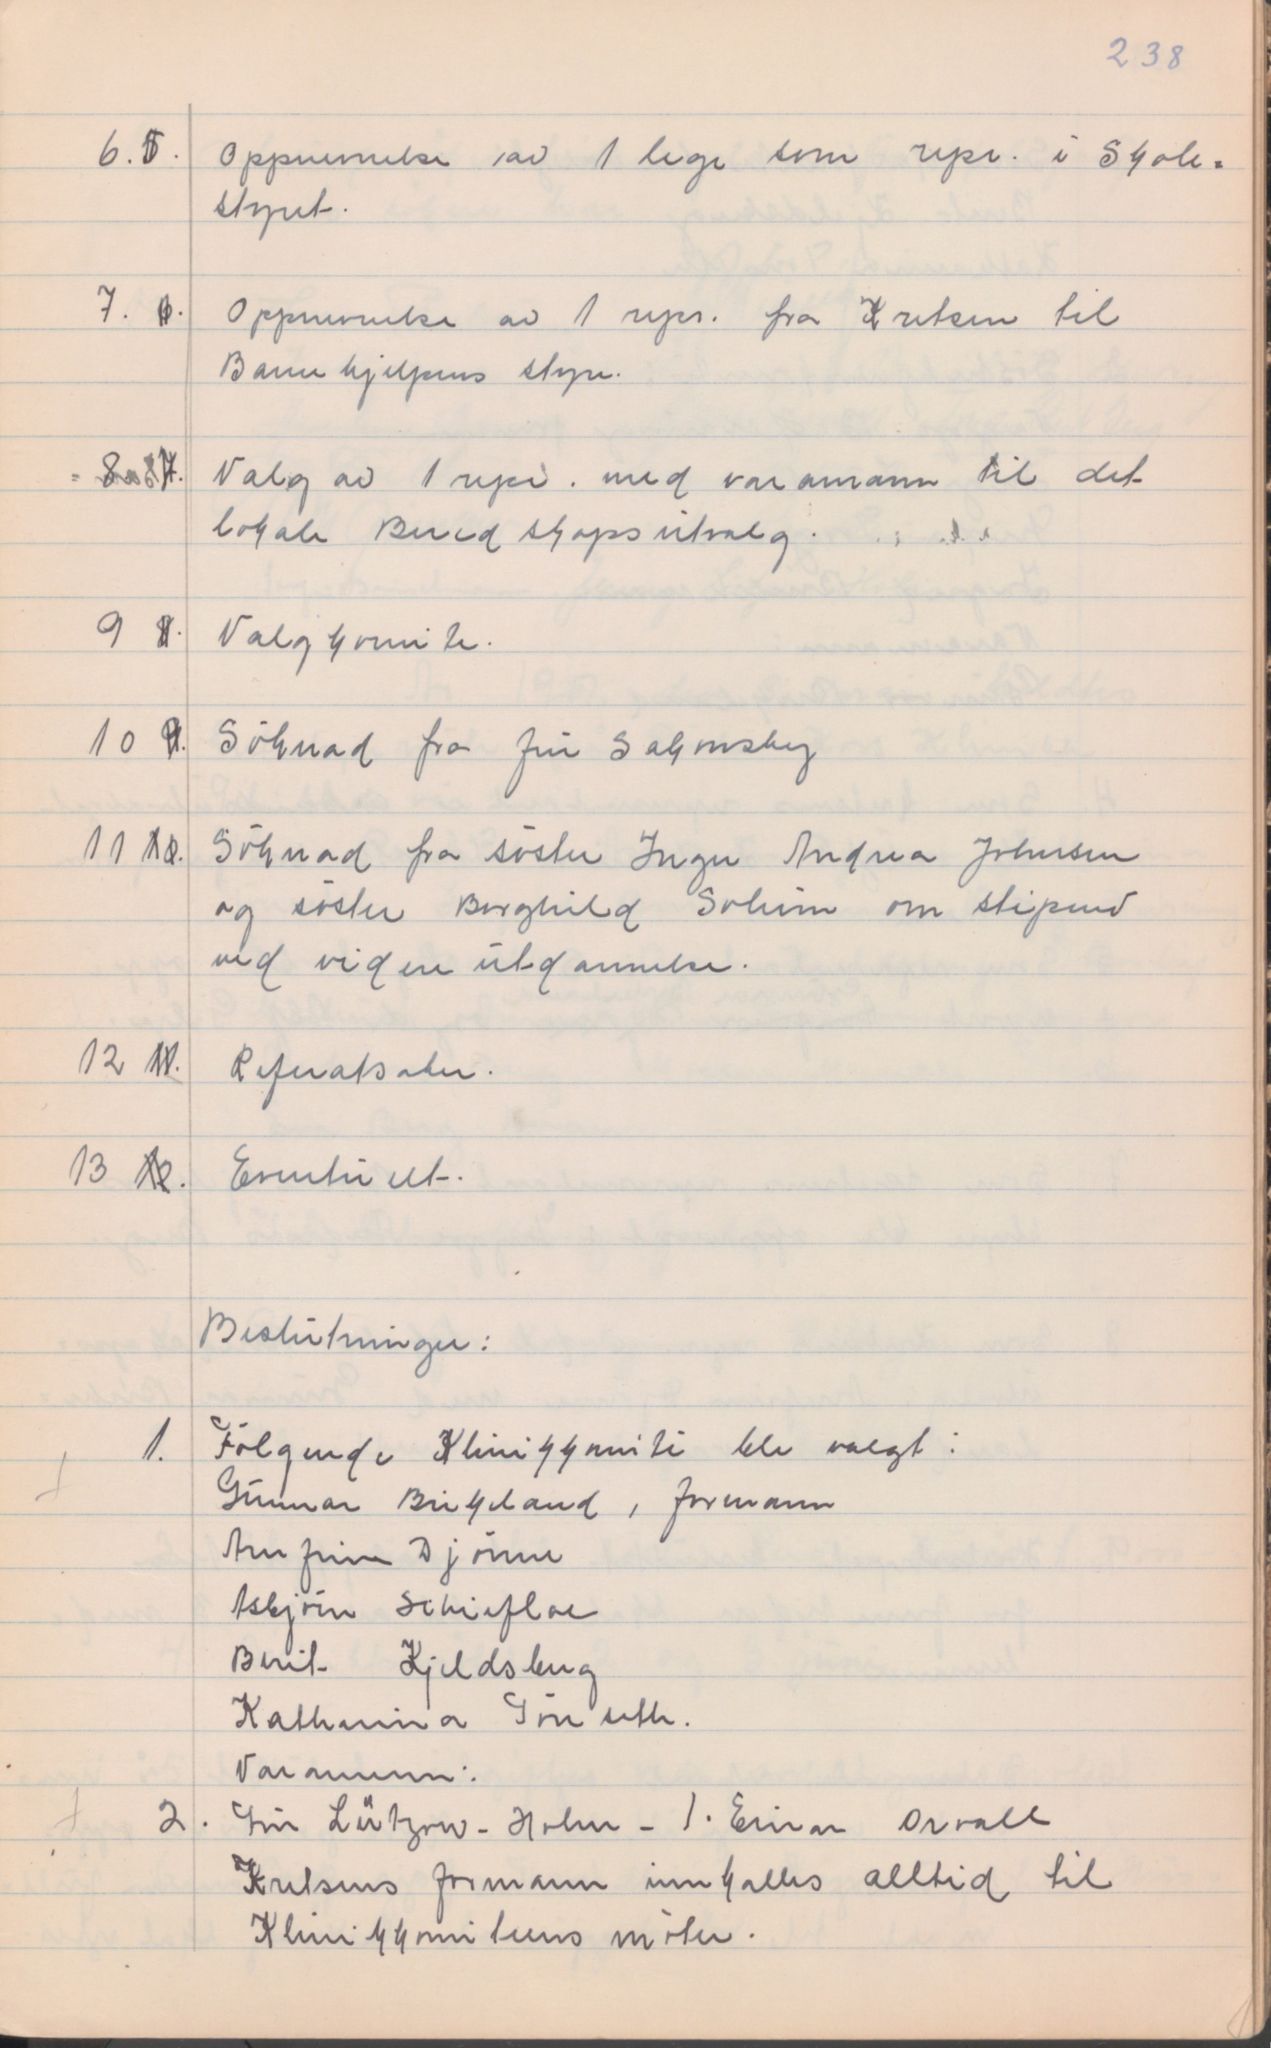 238
6. Oppnevnelse av 1 lege som repr. i Skole=
styret.
7. Oppnevnelse av 1 repr. fra Kretsen til
Barnehjelpens styre.
8. Valg av 1 repr. med varamann til det
lokale Beredskapsutvalg.
9 Valgkomite.
10 Søknad fra fru Sakomsberg
11 Søknad fra søster Inger Andrea Johnsen
og søster Borghild Solheim om stipend
ved videre utdannelse.
12 Referatsaker.
13 Eventuelt.
Beslutninger:
1. Følgende Klinikkomite ble valgt:
Gunnar Birkeland, formann
Arnfinn Djønne
Asbjørn Schiefloe
Berit Kjeldsberg
Katharina
Varamenn:
2. Fru Lützow-Holm - 1. Einar Orvall
Kretsens formann innkalles alltid til
Klinikkomiteens møter.